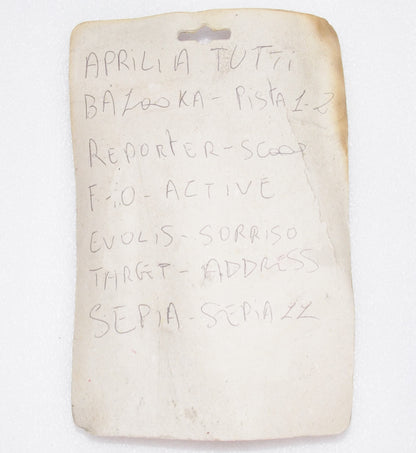 APRILIA TUTTi
BAZooKA - Pista 1-2
REPORtER - Scoop
F-10 - ACTIVE
EVOLIS - SORRISO
TARGET - ADDRESS
SEPiA - SEPiA 11